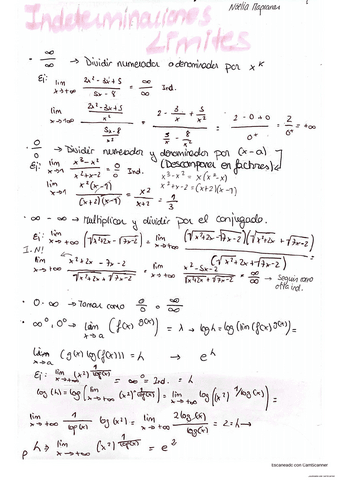 Noelia
Indeterminaciones
Límites
· ∞/∞ → Dividir numerador o denominador por x^k
Ej: lim x→+∞ (2x²-3x+5)/(5x-8) = ∞/∞ Ind.
lim x→+∞ ((2x²-3x+5)/x²)/((5x-8)/x²) = (2 - 3/x + 5/x²)/(5/x - 8/x²) = (2-0+0)/0⁺ = 2/0⁺ = +∞
· 0/0 → Dividir numerador y denominador por (x-a)
(Descomponer en factores)
Ej: lim x→1 (x³-x²)/(x²+x-2) = 0/0 Ind.
x³-x² = x(x²-x)
x²+x-2 = (x+2)(x-1)
lim x→1 x²(x-1)/((x+2)(x-1)) = x²/(x+2) = 1/3
· ∞-∞ → Multiplicar y dividir por el conjugado.
Ej: lim x→+∞ (√(x²+2x) - √(7x-2)) = lim x→+∞ (√(x²+2x) - √(7x-2))(√(x²+2x) + √(7x-2))/(√(x²+2x) + √(7x-2)) =
lim x→+∞ (x²+2x-7x-2)/(√(x²+2x) + √(7x-2)) = lim x→+∞ (x²-5x-2)/(√(x²+2x) + √(7x-2)) = ∞/∞ → Seguir como
· 0·∞ → Tomar como 0/0 o ∞/∞
· ∞⁰, 0⁰ → lim x→a (f(x)^g(x)) = λ → log h = log(lim (f(x)^g(x)) =
lim x→a (g(x) log(f(x))) = h → e^h
Ej: lim x→+∞ (x²)^(1/log(x)) = ∞⁰ = Ind. = h
log(h) = log(lim x→+∞ (x²)^(1/log(x))) = lim x→+∞ log (x²)^(1/log(x)) =
lim x→+∞ 1/log(x) · log(x²) = lim x→+∞ 2log(x)/log(x) = 2 = h →
h = lim x→+∞ (x²)^(1/log(x)) = e²
Escaneado con CamScanner